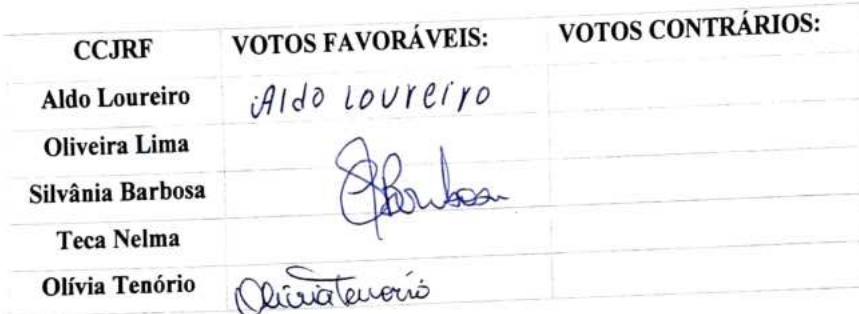 CCJRF VOTOS FAVORÁVEIS: VOTOS CONTRÁRIOS:
Aldo Loureiro Aldo Loureiro
Oliveira Lima
Silvânia Barbosa SBarbosa
Teca Nelma
Olívia Tenório Olivia Tenorio